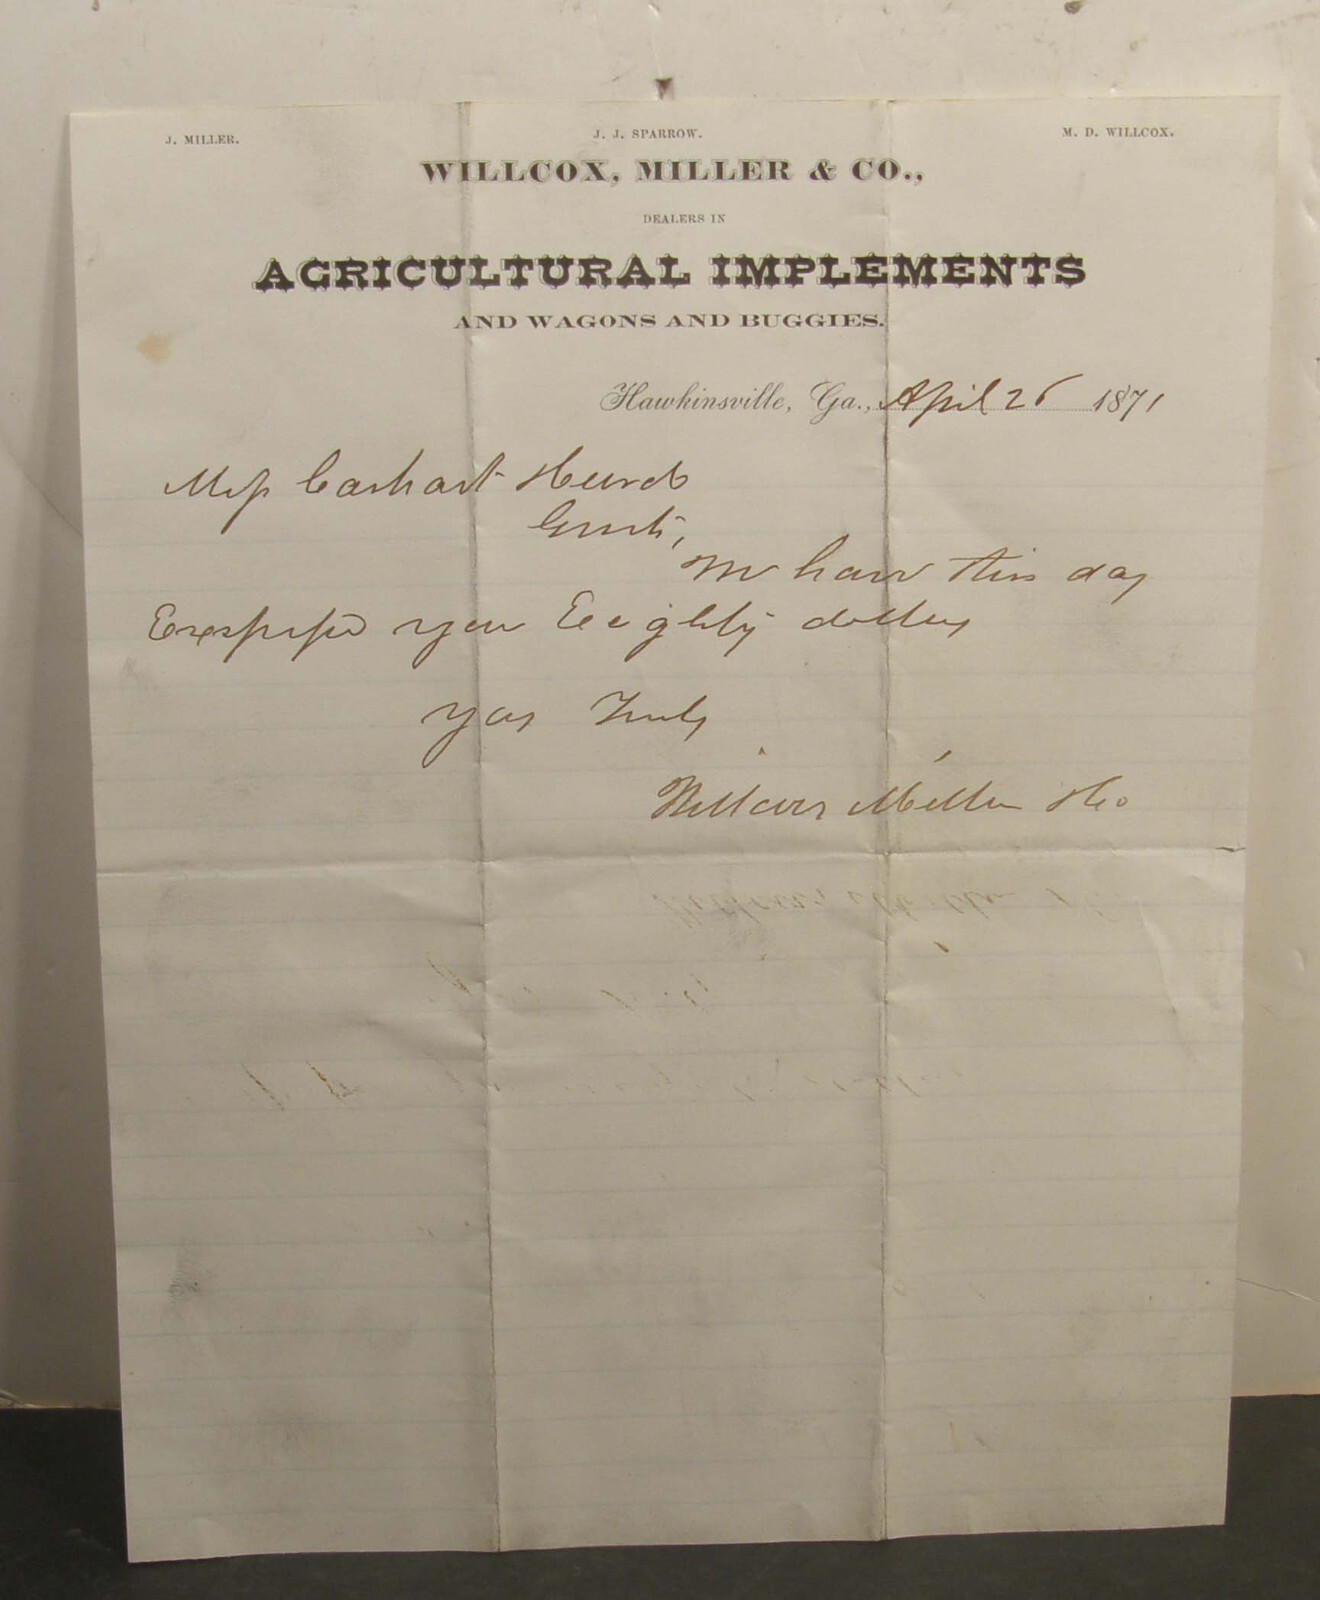 J. MILLER. J. J. SPARROW. M. D. WILLCOX.
WILLCOX, MILLER & CO.,
DEALERS IN
AGRICULTURAL IMPLEMENTS
AND WAGONS AND BUGGIES.
Hawkinsville, Ga., April 26 1871
Mess Carhart & Curd
Gents,
We have this day
Expressed you Eeighty dollars
Yors Truly
Willcox Miller & Co